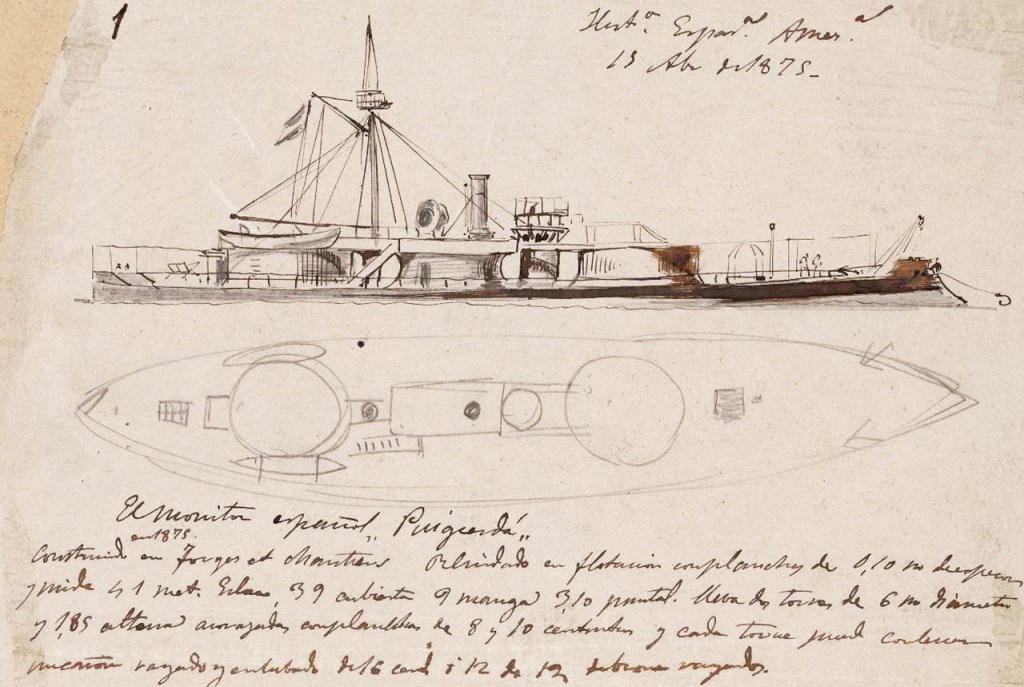 1
Ilustn. Españ.a Amer.a
15 Abr de 1875-
El monitor español „Puigcerdá„
en 1875.
Construido en Forges et chantiers Blindado en flotacion con planchas de 0,10 m de espesor
y mide 41 met. Eslora, 39 cubierta 9 manga 3,10 puntal. lleva dos torres de 6 m diametro
y 1,85 altura acorazadas con planchas de 8 y 10 centimtros y cada torre pued contener
un cañon rayado y entubado de 16 cent ó 12 de 12, de bronce rayados.